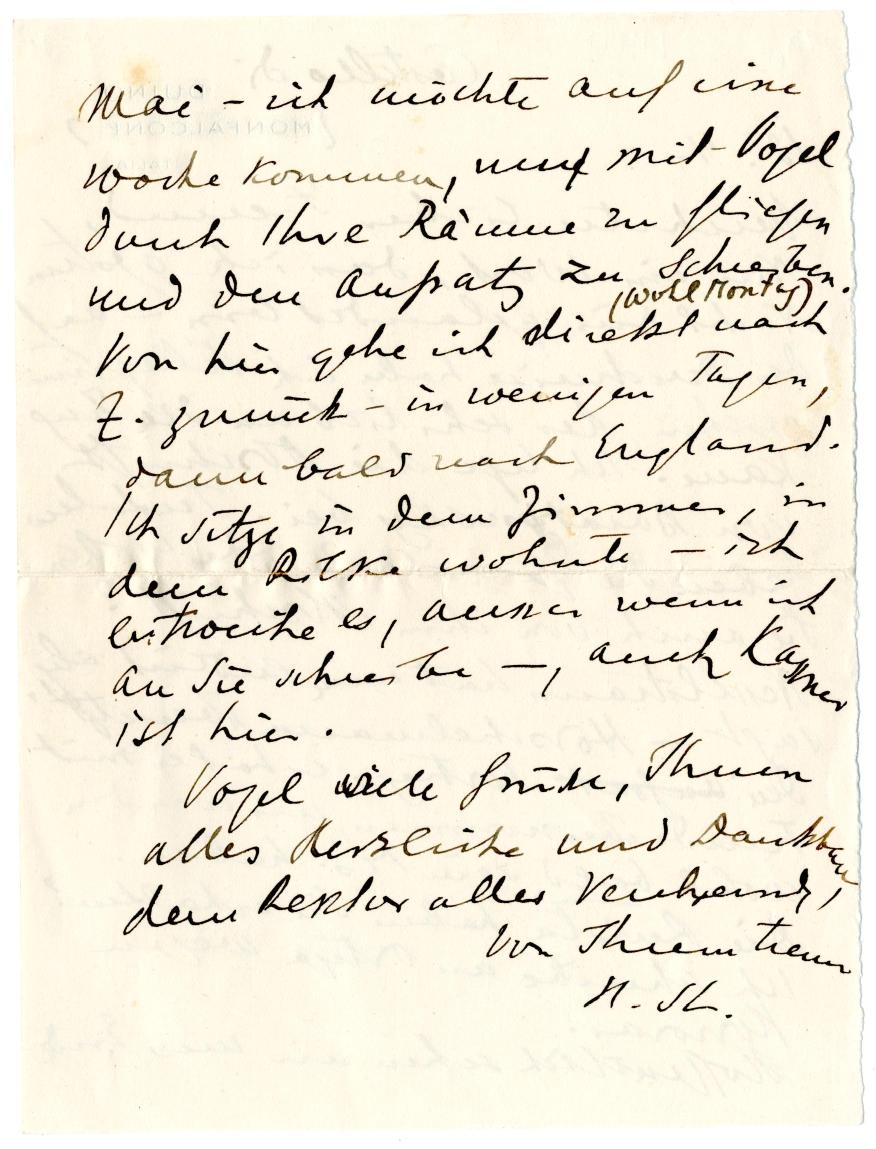 Mai – ich möchte auf eine
Woche kommen, mit Vogel
durch Ihre Räume zu fliegen
und den Aufsatz zu schreiben.
(wohl Montag)
Von hier gehe ich direkt nach
Z. zurück – in wenigen Tagen,
dann bald nach England.
Ich sitze in dem Zimmer, in
dem Rilke wohnte – ich
entweihe es, ausser wenn ich
an Sie schreibe –, auch Kassner
ist hier.
Vogel viele Grüsse, Ihnen
alles Herzliche und Dankbare,
dem Rektor alles Verehrende,
von Ihrem treuen
H. St.